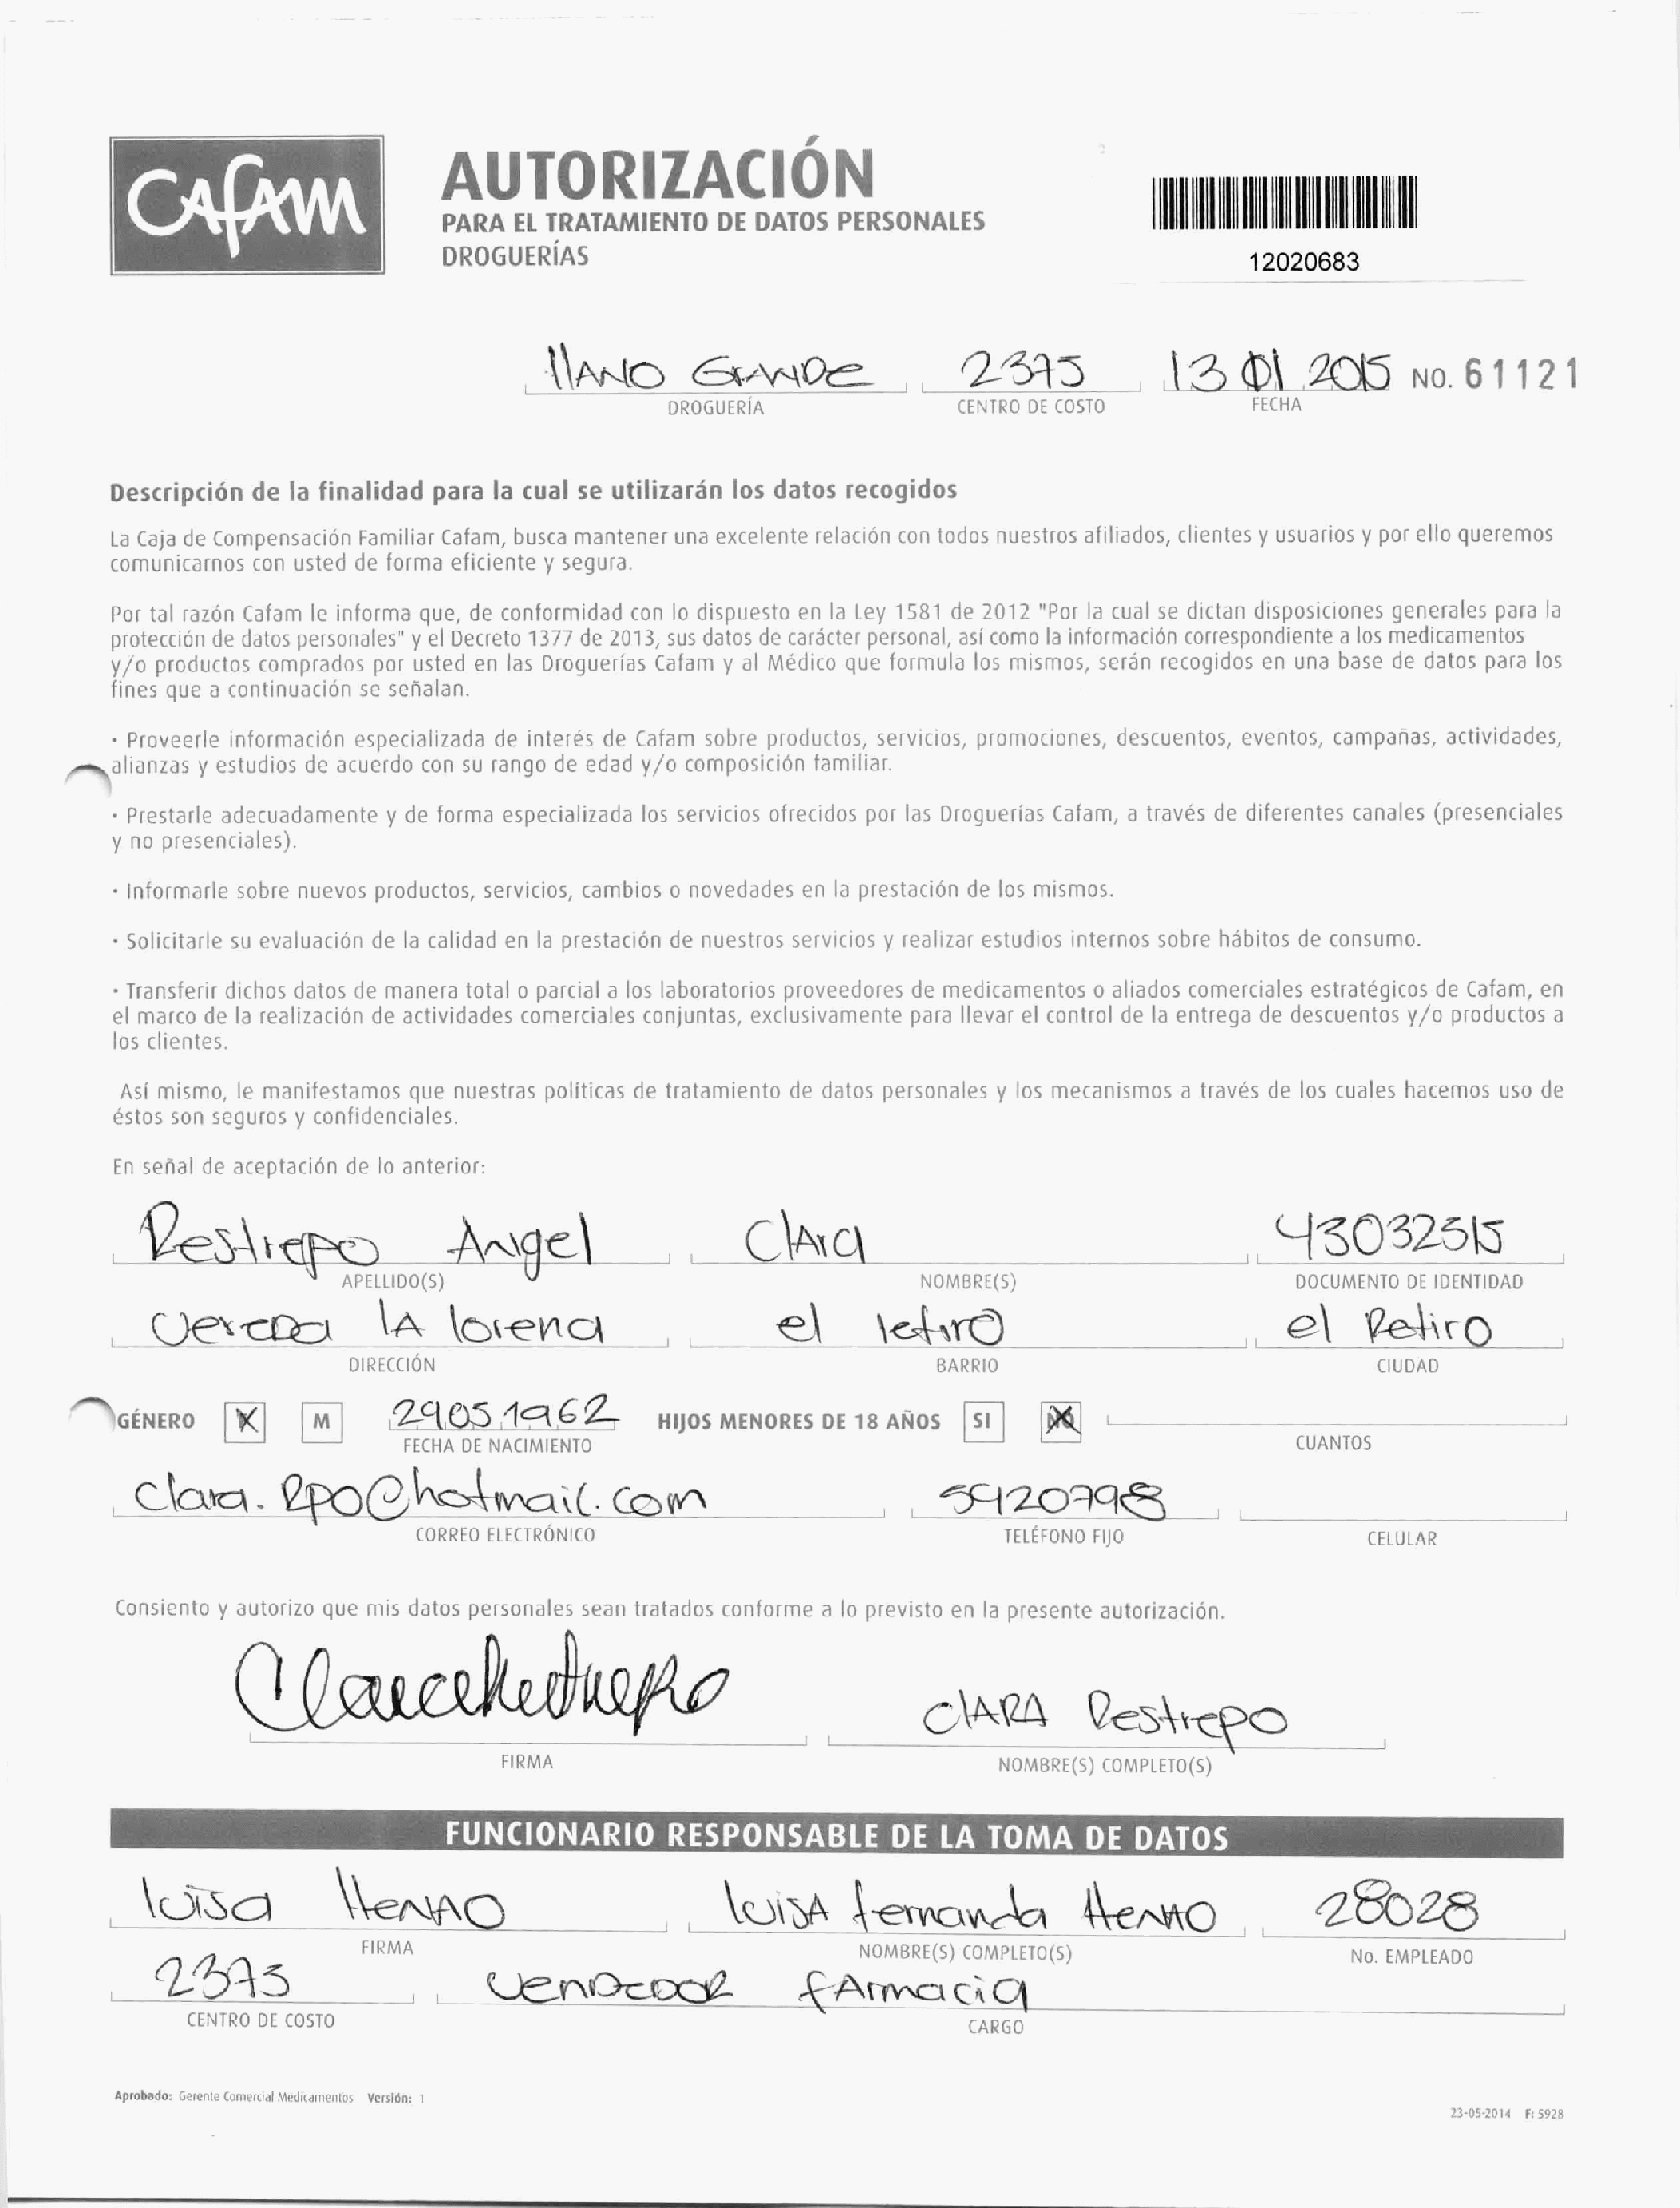 CAFAM
AUTORIZACIÓN
PARA EL TRATAMIENTO DE DATOS PERSONALES
DROGUERÍAS
12020683
llANO GrANDe 2375 13 01 2015 NO. 61121
DROGUERÍA CENTRO DE COSTO FECHA
Descripción de la finalidad para la cual se utilizarán los datos recogidos
La Caja de Compensación Familiar Cafam, busca mantener una excelente relación con todos nuestros afiliados, clientes y usuarios y por ello queremos
comunicarnos con usted de forma eficiente y segura.
Por tal razón Cafam le informa que, de conformidad con lo dispuesto en la Ley 1581 de 2012 "Por la cual se dictan disposiciones generales para la
protección de datos personales" y el Decreto 1377 de 2013, sus datos de carácter personal, así como la información correspondiente a los medicamentos
y/o productos comprados por usted en las Droguerías Cafam y al Médico que formula los mismos, serán recogidos en una base de datos para los
fines que a continuación se señalan.
· Proveerle información especializada de interés de Cafam sobre productos, servicios, promociones, descuentos, eventos, campañas, actividades,
alianzas y estudios de acuerdo con su rango de edad y/o composición familiar.
· Prestarle adecuadamente y de forma especializada los servicios ofrecidos por las Droguerías Cafam, a través de diferentes canales (presenciales
y no presenciales).
· Informarle sobre nuevos productos, servicios, cambios o novedades en la prestación de los mismos.
· Solicitarle su evaluación de la calidad en la prestación de nuestros servicios y realizar estudios internos sobre hábitos de consumo.
· Transferir dichos datos de manera total o parcial a los laboratorios proveedores de medicamentos o aliados comerciales estratégicos de Cafam, en
el marco de la realización de actividades comerciales conjuntas, exclusivamente para llevar el control de la entrega de descuentos y/o productos a
los clientes.
Así mismo, le manifestamos que nuestras políticas de tratamiento de datos personales y los mecanismos a través de los cuales hacemos uso de
éstos son seguros y confidenciales.
En señal de aceptación de lo anterior:
Restrepo Angel Clara 43032515
APELLIDO(S) NOMBRE(S) DOCUMENTO DE IDENTIDAD
vereda lA lorena el retiro el Retiro
DIRECCIÓN BARRIO CIUDAD
GÉNERO X M 29051962 HIJOS MENORES DE 18 AÑOS SI NO
FECHA DE NACIMIENTO CUANTOS
Clara.Rpo@hotmail.com 5420798
CORREO ELECTRÓNICO TELÉFONO FIJO CELULAR
Consiento y autorizo que mis datos personales sean tratados conforme a lo previsto en la presente autorización.
ClARA Restrepo
FIRMA NOMBRE(S) COMPLETO(S)
FUNCIONARIO RESPONSABLE DE LA TOMA DE DATOS
luisa HenAO luisA fernanda HenAO 28028
FIRMA NOMBRE(S) COMPLETO(S) No. EMPLEADO
2375 venDeDOR fArmacia
CENTRO DE COSTO CARGO
Aprobado: Gerente Comercial Medicamentos Versión: 1
23-05-2014 F: 5928